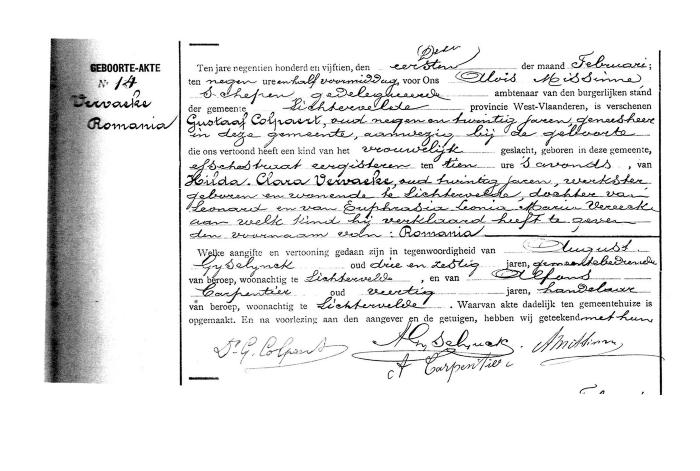 GEBOORTE-AKTE
N° 14
Vervaeke
Romania
Ten jare negentien honderd en vijftien, den eersten der maand Februari;
ten negen ure en half voormiddag, voor Ons Alois Missinne
Schepen gedelegueerde ambtenaar van den burgerlijken stand
der gemeente Lichtervelde provincie West-Vlaanderen, is verschenen
Gustaaf Colpaert, oud negen en twintig jaren, geneesheer
in deze gemeente, aanwezig bij de geboorte
die ons vertoond heeft een kind van het vrouwelijk geslacht, geboren in deze gemeente,
eergisteren ten tien ure 's avonds, van
Hilda Clara Vervaeke, oud twintig jaren, werkster
geboren en wonende te Lichtervelde, dochter van
Leonard en van Euphrasia Leonia Maria
aan welk kind hij verklaard heeft te geven
den voornaam van: Romania
Welke aangifte en vertooning gedaan zijn in tegenwoordigheid van August
Gyselynck oud drie en zestig jaren, gemeentebediende
van beroep, woonachtig te Lichtervelde, en van Alfons
Carpentier oud veertig jaren, handelaar
van beroep, woonachtig te Lichtervelde. Waarvan akte dadelijk ten gemeentehuize is
opgemaakt. En na voorlezing aan den aangever en de getuigen, hebben wij geteekend met hun
Dr G. Colpaert
A Gyselynck
A Missinne
A Carpentier